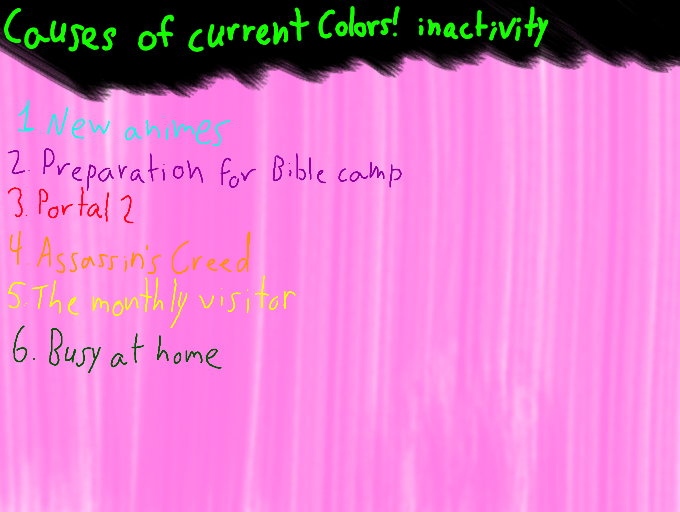 Causes of current Colors! inactivity
1 New animes
2. Preparation for Bible camp
3. Portal 2
4 Assassin's Creed
5. The monthly visitor
6. Busy at home